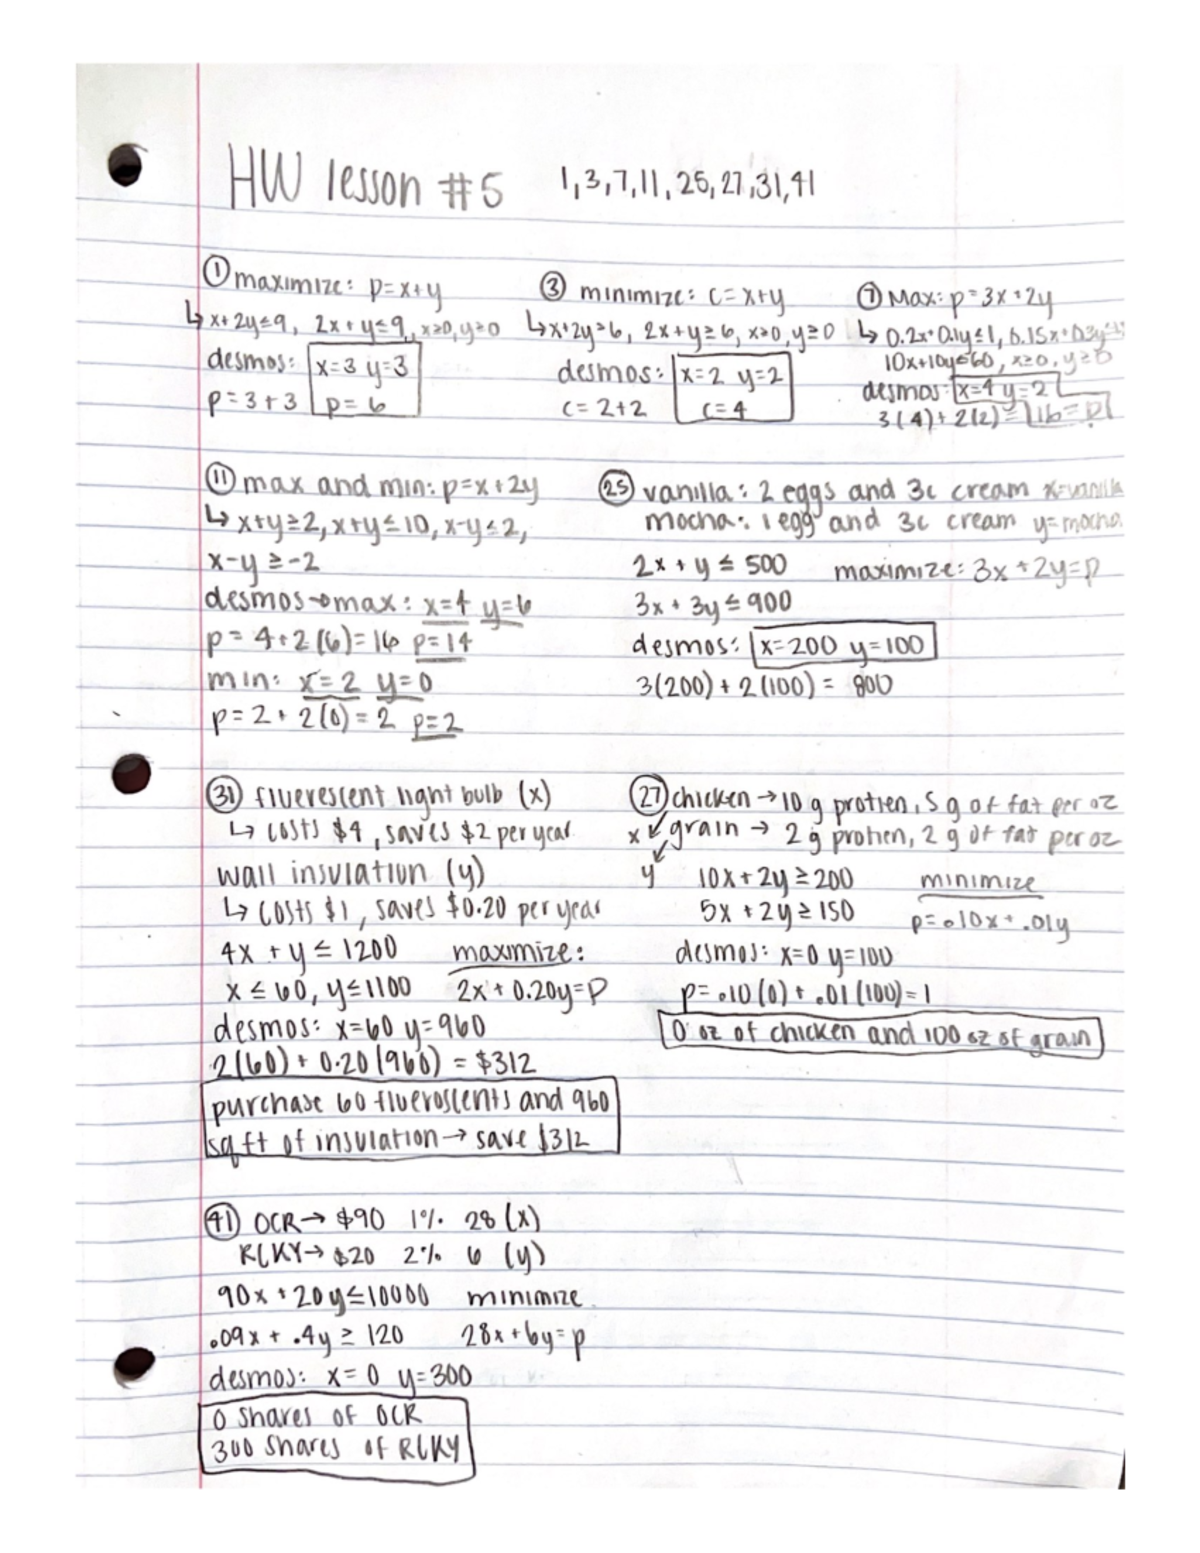 HW lesson #5 1,3,7,11,25,27,31,41
① maximize: p=x+y
↳ x+2y≤9, 2x+y≤9, x≥0, y≥0
desmos: x=3 y=3
p=3+3 p=6
③ minimize: c=x+y
↳ x+2y≥6, 2x+y≥6, x≥0, y≥0
desmos: x=2 y=2
c=2+2 c=4
⑦ Max: p=3x+2y
↳ 0.2x+0.1y≤1, 0.15x+0.3y≤1.5
10x+10y≤60, x≥0, y≥0
desmos: x=4 y=2
3(4)+2(2)=16=p
⑪ max and min: p=x+2y
↳ x+y≥2, x+y≤10, x-y≤2,
x-y≥-2
desmos→max: x=4 y=6
p=4+2(6)=16 p=14
min: x=2 y=0
p=2+2(0)=2 p=2
㉕ vanilla: 2 eggs and 3c cream x=vanilla
mocha: 1 egg and 3c cream y=mocha
2x+y≤500 maximize: 3x+2y=p
3x+3y≤900
desmos: x=200 y=100
3(200)+2(100)= 800
㉛ fluerescent light bulb (x)
↳ costs $4, saves $2 per year
wall insulation (y)
↳ costs $1, saves $0.20 per year
4x+y≤1200 maxmize:
x≤60, y≤1100 2x+0.20y=P
desmos: x=60 y=960
2(60)+0.20(960)=$312
purchase 60 flueroscents and 960
sq ft of insulation→ save $312
㉗ chicken→10 g protien, 5 g of fat per oz
x↙ grain→ 2 g protien, 2 g of fat per oz
y 10x+2y≥200 minimize
5x+2y≥150 p=.10x+.01y
desmos: x=0 y=100
p=.10(0)+.01(100)=1
0 oz of chicken and 100 oz of grain
㊶ OCR→ $90 1% 28 (x)
RCKY→ $20 2% 6 (y)
90x+20y≤10000 minimize
.09x+.4y≥120 28x+6y=p
desmos: x=0 y=300
0 shares of OCR
300 shares of RCKY